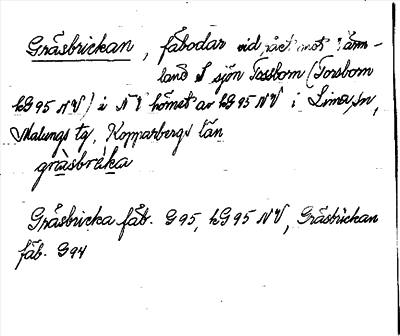 Gräsbrickan, fäbodar vid rået mot Värm-
land S sjön Tossbom (Torsborn
kG 95 NV) i NV hörnet av kG 95 NV i Lima sn,
Malungs tg, Kopparbergs län
gräsbrèka
Gräsbricka fäb. G 95, kG 95 NV, Gräsbrickan
fäb. G 94